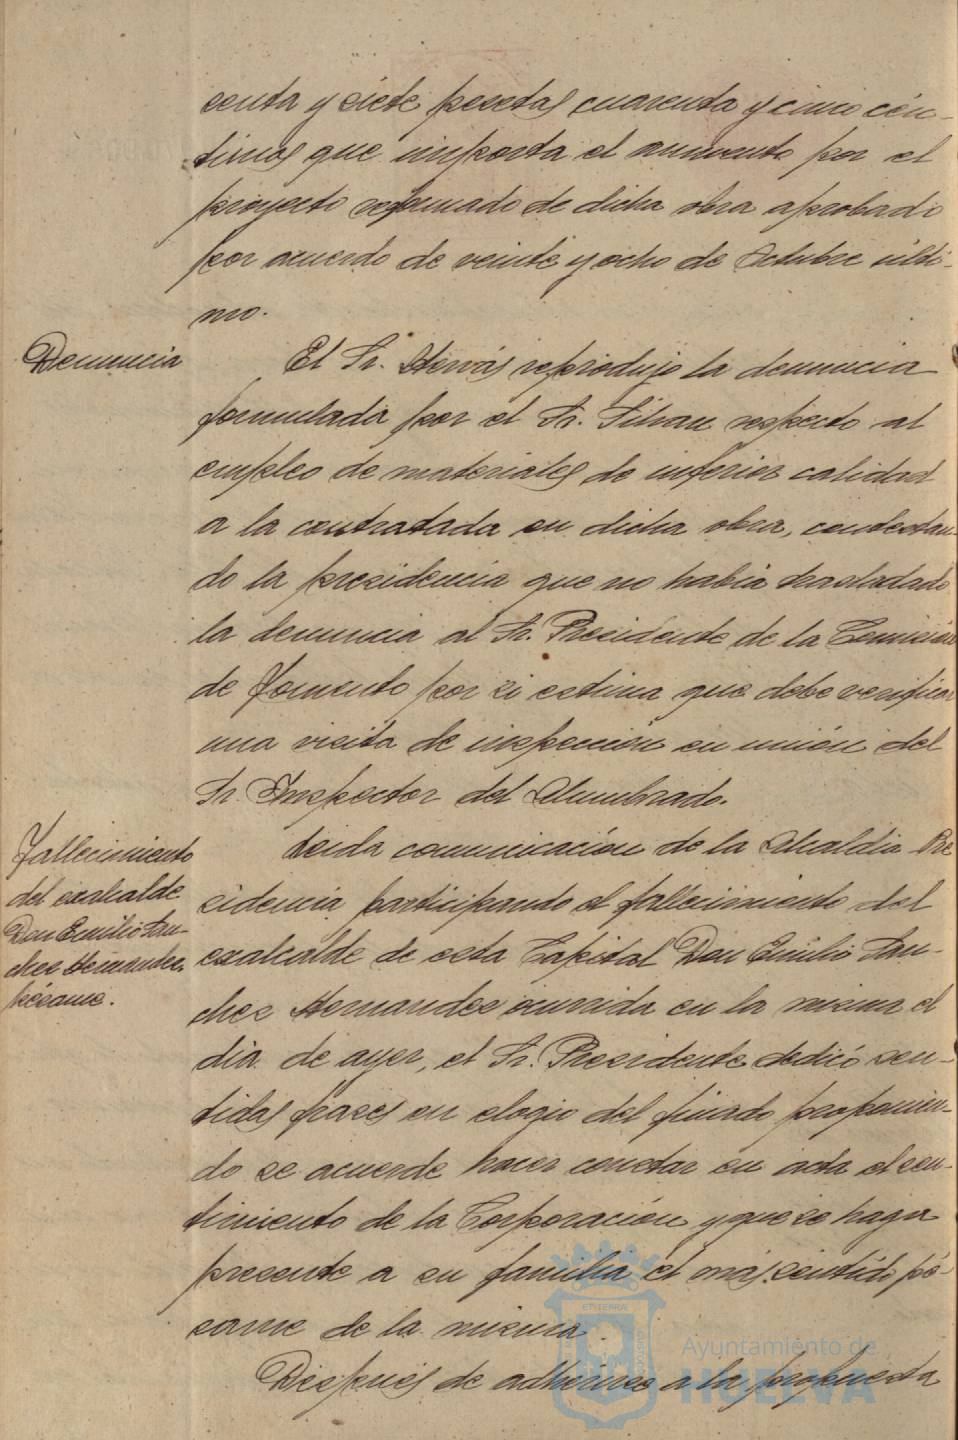 senta y siete pesetas cuarenta y cinco cén-
timos que importa el aumento por el
proyecto reformado de dicha obra aprobado
por acuerdo de veinte y ocho de Octubre últi-
mo.
Denuncia
El Sr. Hervás reprodujo la denuncia
formulada por el Sr. respecto al
empleo de materiales de inferior calidad
a la contratada en dicha obra, contestan-
do la presidencia que no había trasladado
la denuncia al Sr. Presidente de la Comisión
de Fomento por si estima que debe verificar
una visita de inspección en unión del
Sr. Inspector del Alumbrado.
Fallecimiento
del exalcalde
Don Emilio San-
chez Hernandez,
pésame.
Leida comunicación de la Alcaldia Pre
sidencia participando el fallecimiento del
exalcalde de esta Capital Don Emilio San-
chez Hernandez ocurrida en la misma el
dia de ayer, el Sr. Presidente dedicó sen-
tidas frases en elogio del finado proponien-
do se acuerde hacer constar en acta el sen-
timiento de la Corporación y que se haga
presente a su familia el más sentido pé-
same de la misma.
Después de adherirse a la propuesta
Ayuntamiento de
HUELVA